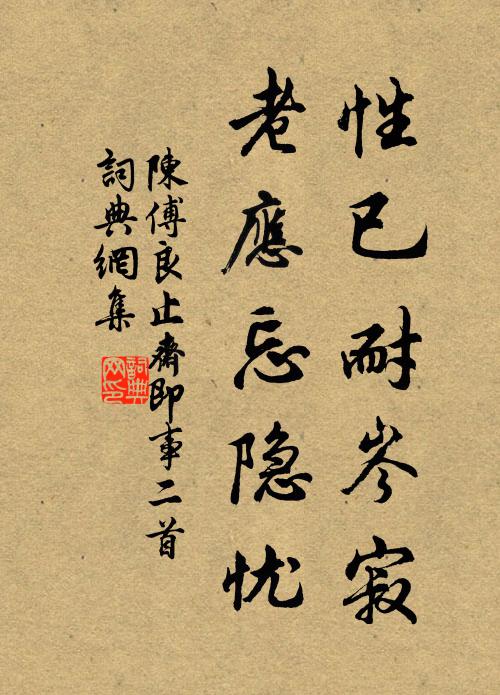 性已耐岑寂
老應忘隐忧
陳傅良止齋即事二首
詞典網集
詞典
网印